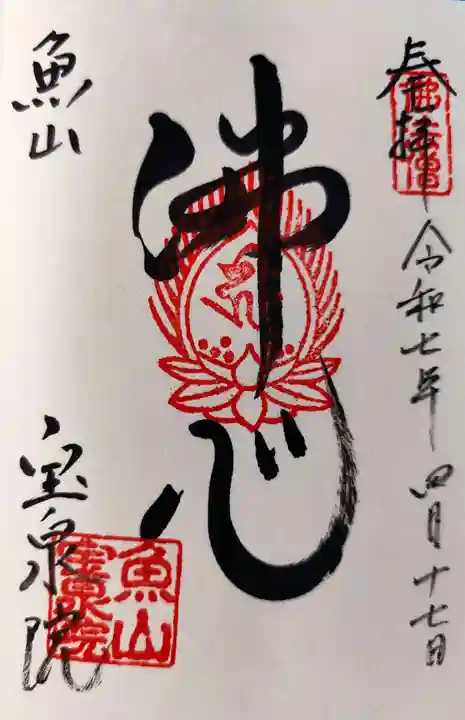 奉拝
令和七年四月十七日
佛心
魚山
宝泉院
魚山
寳泉院